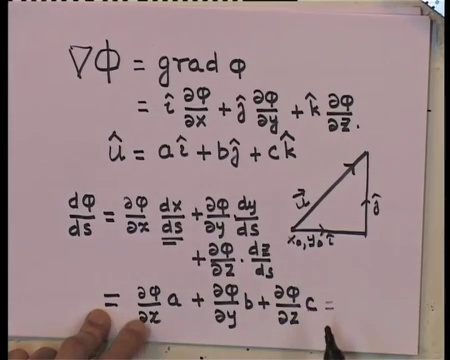 ∇Φ = grad φ
= î ∂φ/∂x + ĵ ∂φ/∂y + k̂ ∂φ/∂z.
û = aî + bĵ + ck̂
dφ/ds = ∂φ/∂x dx/ds + ∂φ/∂y dy/ds
+ ∂φ/∂z · dz/ds
= ∂φ/∂x a + ∂φ/∂y b + ∂φ/∂z c =
û
ĵ
x₀, y₀ î